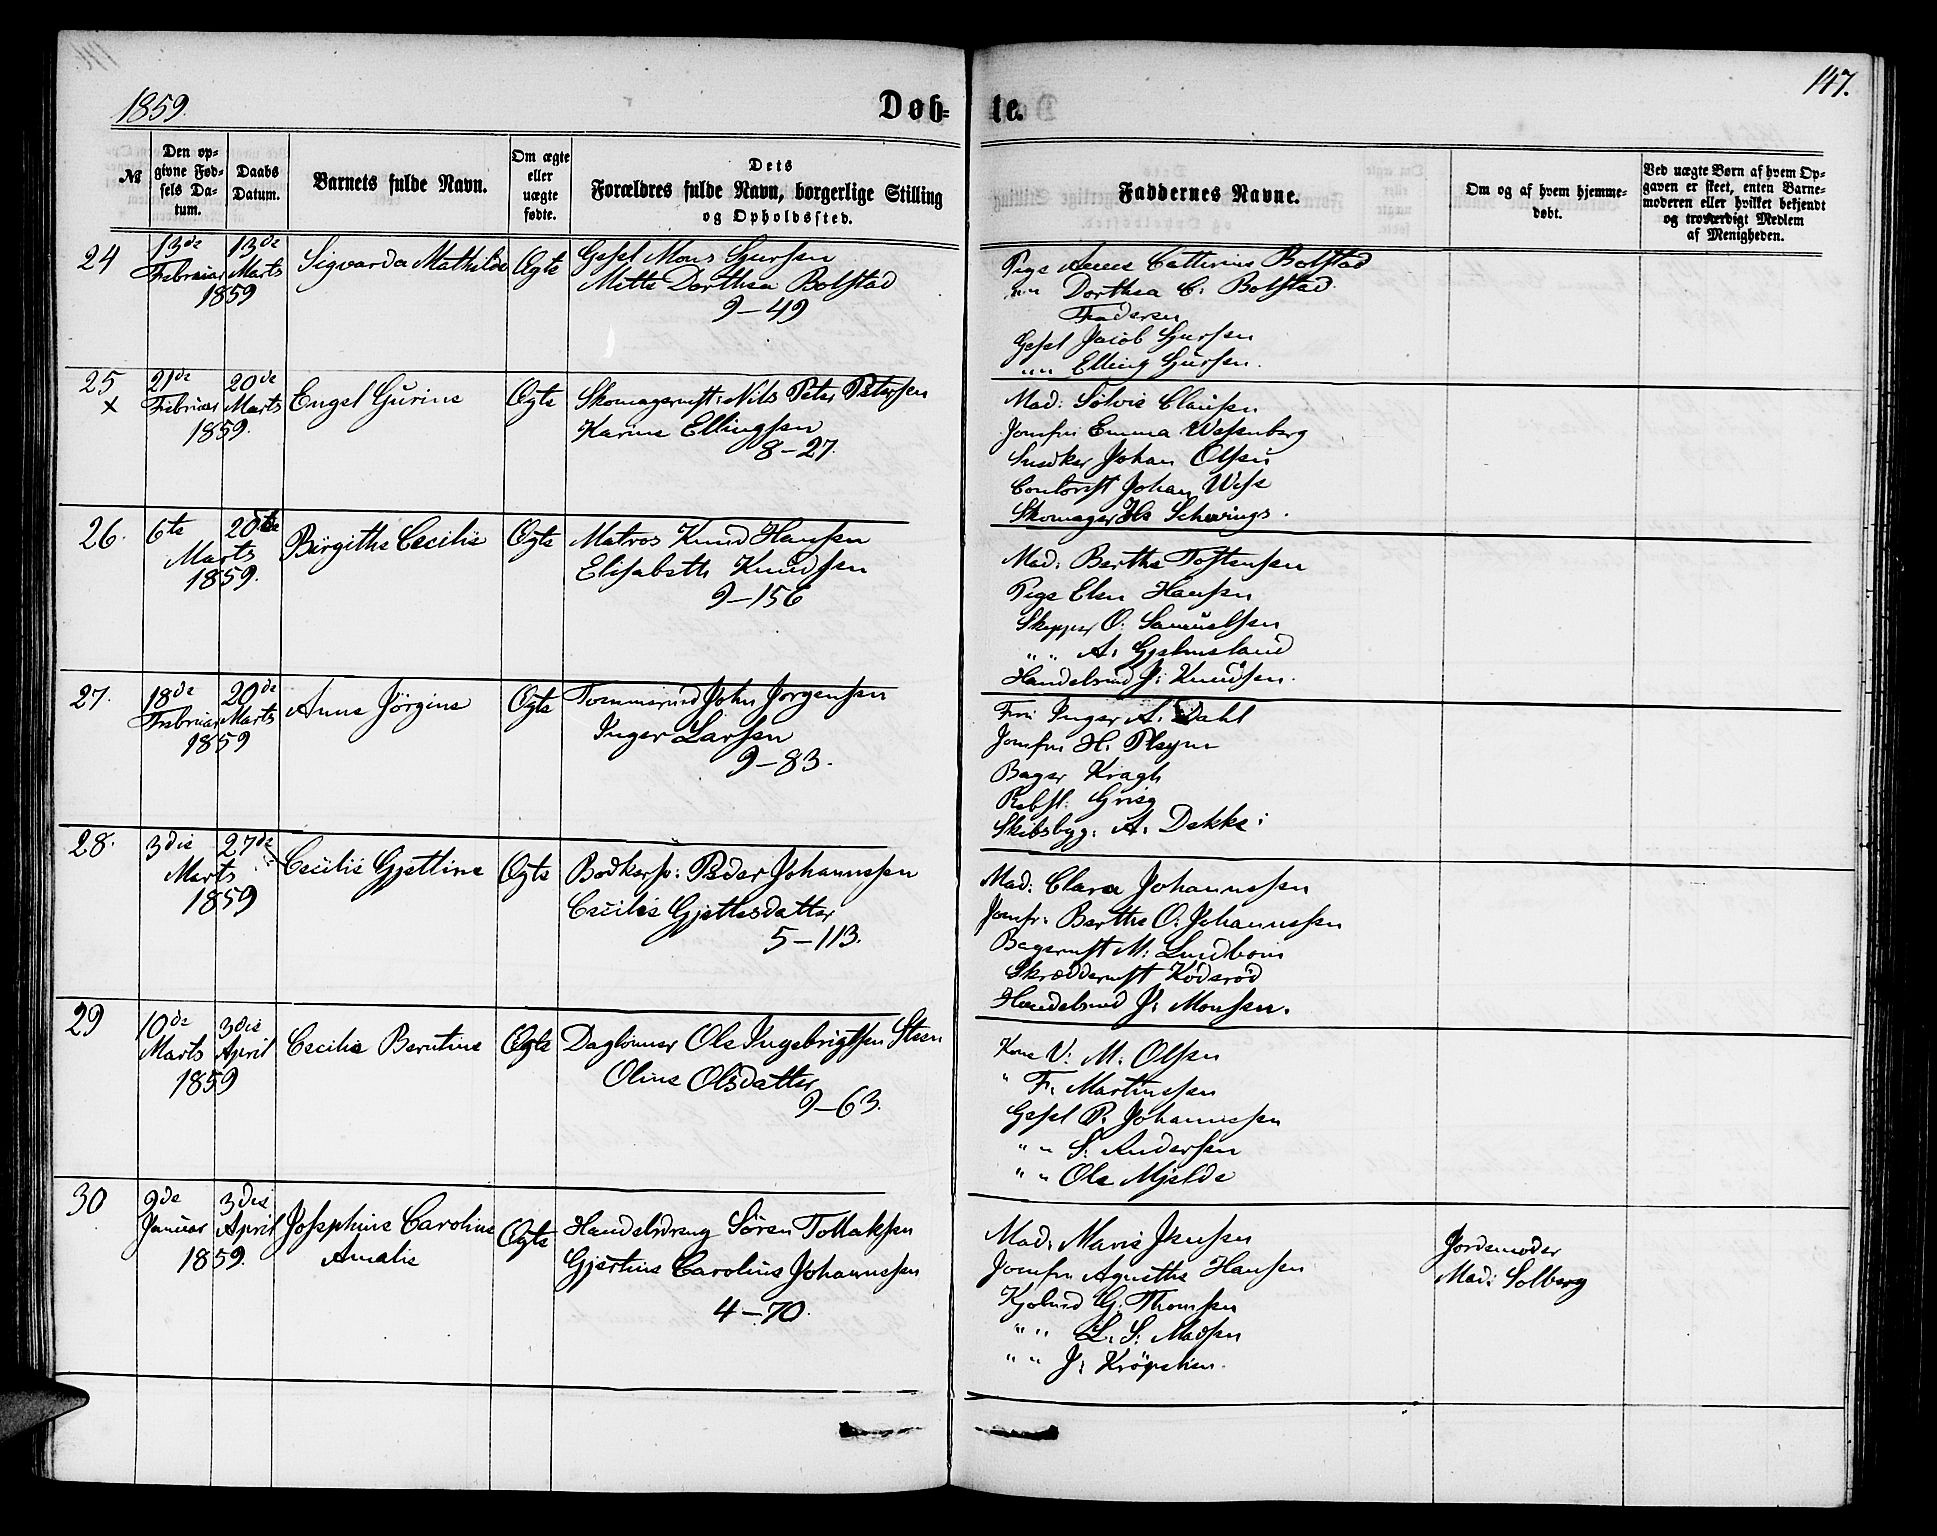 1859.
Døb-
te.
147.
№
Den op-
givne Fød-
sels Da-
tum.
Daabs
Datum.
Barnets fulde Navn.
Om ægte
eller
uægte
fødte.
Dets
Forældres fulde Navn, borgerlige Stilling
og Opholdssted.
Faddernes Navne.
Om og af hvem hjemme-
døbt.
Ved uægte Børn af hvem Op-
gaven er skeet, enten Barne-
moderen eller hvilket bekjendt
og troværdigt Medlem
af Menigheden.
24
13de
Februar
13de
Marts
1859
Sigvarda Mathilde
Ægte
Gesel Mons Sjursen
Mette Dorthea Bolstad
9-49
Pige Anne Cathrine Bolstad
"" Dorthea C. Bolstad
Gesel Jacob Sjursen
"" Elling Sjursen.
25
x
21de
Februar
20de
Marts
1859.
Engel Gurine
Ægte
Skomagermst: Nils Peter Petersen
Karine Ellingsen
8-27.
Mad: Sølvie Clausen
Jomfru Emma Wesenberg
Snedker Johan Olsen
Contorist Johan Wese
Skomager Schevings.
26.
6te
20de
Marts
1859.
Birgithe Cecilie
Ægte
Matros Knud Hansen
Elisabeth Knudsen
9-156
Mad: Berthe Tostensen
Pige Elen Hansen
Skipper O: Samuelsen
"" A: Gjelmesland
Handelsmd J: Knudsen.
27.
18de
Februar
20de
Marts
1859
Anne Jörgine
Ægte
Tømmermd John Jørgensen
Inger Larsen
9-83.
Fru Inger A. Dahl
Jomfru H: Pleym
Bager Kragh
Rebsl: Grieg
Skibsbyg: A. Dekke:
28.
3die
27de
Marts
1859
Cecilie Gjettine
Ægte
Bødkersv: Peder Johannessen
Cecilie Gjettesdatter
5-113.
Mad: Clara Johannessen
Jomfr: Berthe O: Johannessen
Bagermst M: Lundbom
Skræddermst Köderöd
Handelsmd J: Monsen.
29
10de
Marts
3die
April
1859
Cecilie Berntine
Ægte
Daglönner Ole Ingebrigtsen Steen
Oline Olsdatter
9-63.
Kone V: M: Olsen
" F. Martinssen
Gesel P. Johannessen
"" S: Andersen
"" Ole Mjelde
30
9de
Januar
3die
April
1859.
Josephine Caroline
Amalie
Ægte
Handelsdreng Sören Tollaksen
Gjertine Caroline Johannessen
4-70.
Mad: Marie Jensen
Jomfru Agnethe Hansen
Kjøbmd G. Thomsen
"" L. S: Madsen
"" J:
Jordemoder
Mad: Solberg